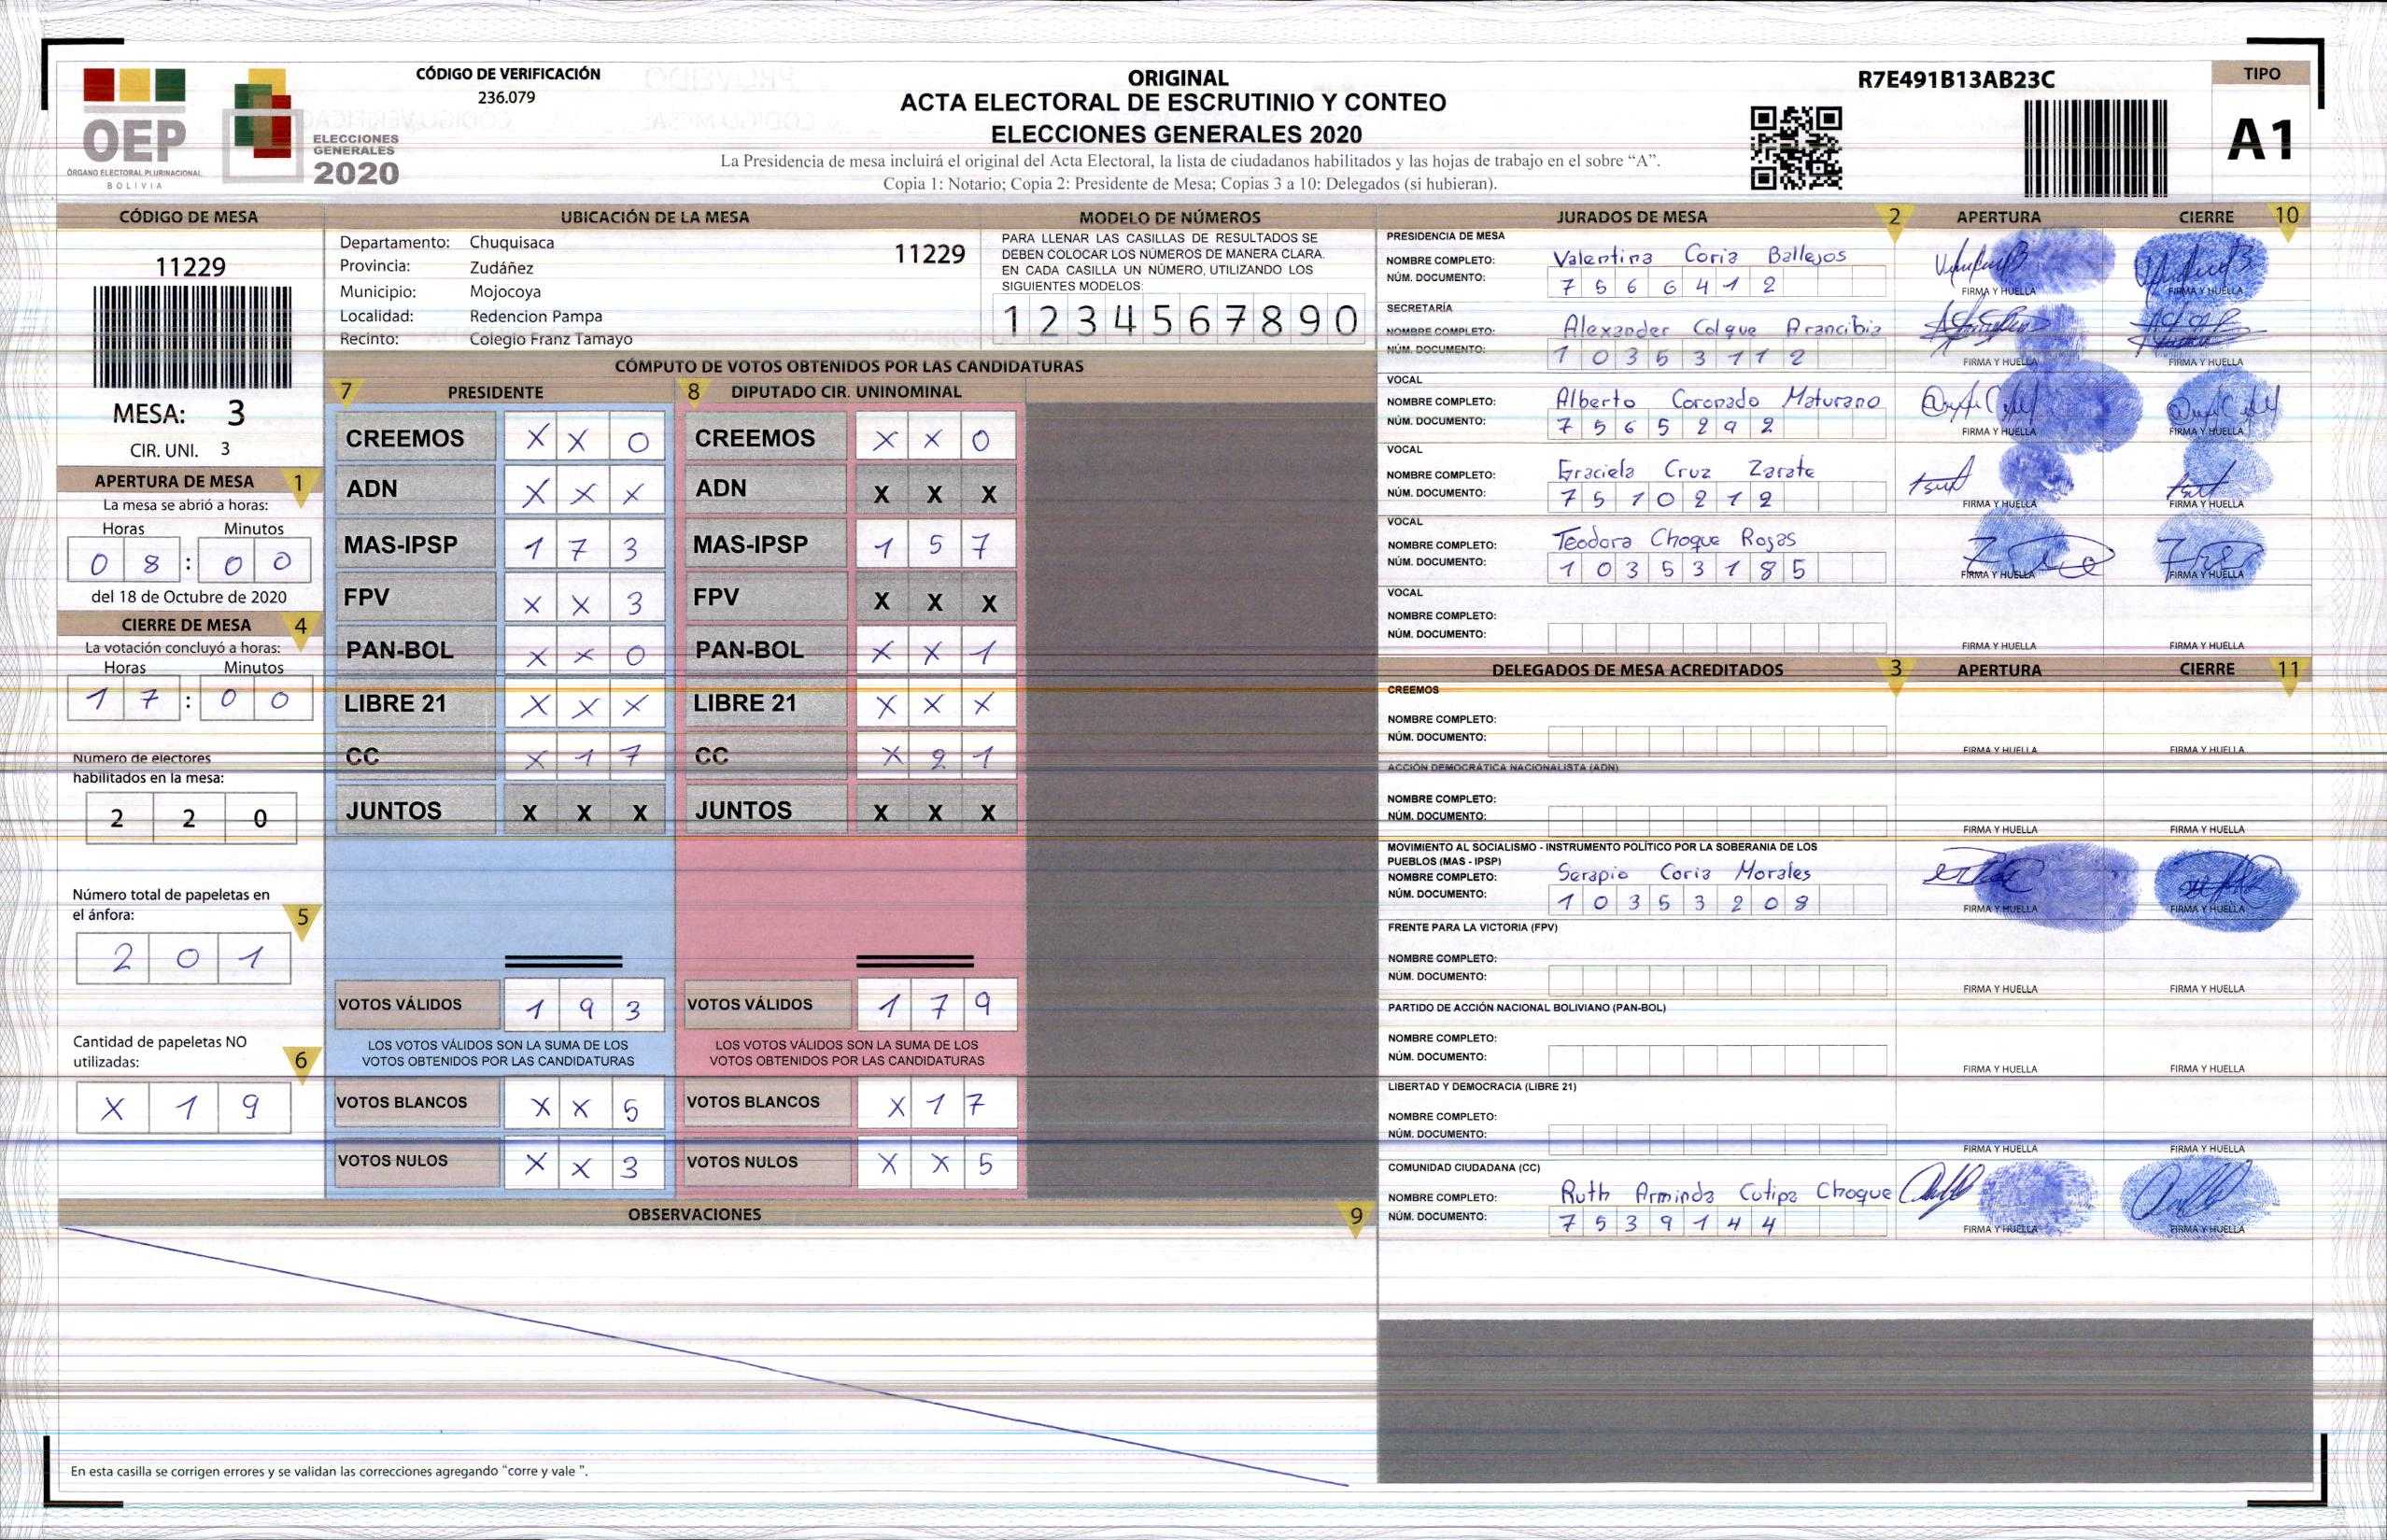 CÓDIGO DE VERIFICACIÓN
236.079
ORIGINAL
ACTA ELECTORAL DE ESCRUTINIO Y CONTEO
ELECCIONES GENERALES 2020
La Presidencia de mesa incluirá el original del Acta Electoral, la lista de ciudadanos habilitados y las hojas de trabajo en el sobre “A”.
Copia 1: Notario; Copia 2: Presidente de Mesa; Copias 3 a 10: Delegados (si hubieran).
R7E491B13AB23C
TIPO
A1
OEP
ÓRGANO ELECTORAL PLURINACIONAL
BOLIVIA
ELECCIONES
GENERALES
2020
CÓDIGO DE MESA
11229
MESA: 3
CIR. UNI. 3
APERTURA DE MESA 1
La mesa se abrió a horas:
Horas Minutos
0 8 : 0 0
del 18 de Octubre de 2020
CIERRE DE MESA 4
La votación concluyó a horas:
Horas Minutos
1 7 : 0 0
Número de electores
habilitados en la mesa:
2 2 0
Número total de papeletas en
el ánfora: 5
2 0 1
Cantidad de papeletas NO
utilizadas: 6
X 1 9
UBICACIÓN DE LA MESA
Departamento: Chuquisaca 11229
Provincia: Zudáñez
Municipio: Mojocoya
Localidad: Redencion Pampa
Recinto: Colegio Franz Tamayo
MODELO DE NÚMEROS
PARA LLENAR LAS CASILLAS DE RESULTADOS SE
DEBEN COLOCAR LOS NÚMEROS DE MANERA CLARA.
EN CADA CASILLA UN NÚMERO, UTILIZANDO LOS
SIGUIENTES MODELOS:
1 2 3 4 5 6 7 8 9 0
CÓMPUTO DE VOTOS OBTENIDOS POR LAS CANDIDATURAS
7 PRESIDENTE 8 DIPUTADO CIR. UNINOMINAL
CREEMOS X X 0 CREEMOS X X 0
ADN X X X ADN X X X
MAS-IPSP 1 7 3 MAS-IPSP 1 5 7
FPV X X 3 FPV X X X
PAN-BOL X X 0 PAN-BOL X X 1
LIBRE 21 X X X LIBRE 21 X X X
CC X 1 7 CC X 2 1
JUNTOS X X X JUNTOS X X X
VOTOS VÁLIDOS 1 9 3 VOTOS VÁLIDOS 1 7 9
LOS VOTOS VÁLIDOS SON LA SUMA DE LOS LOS VOTOS VÁLIDOS SON LA SUMA DE LOS
VOTOS OBTENIDOS POR LAS CANDIDATURAS VOTOS OBTENIDOS POR LAS CANDIDATURAS
VOTOS BLANCOS X X 5 VOTOS BLANCOS X 1 7
VOTOS NULOS X X 3 VOTOS NULOS X X 5
OBSERVACIONES 9
En esta casilla se corrigen errores y se validan las correcciones agregando “corre y vale ”.
JURADOS DE MESA 2 APERTURA CIERRE 10
PRESIDENCIA DE MESA
NOMBRE COMPLETO: Valentina Coria Ballejos
NÚM. DOCUMENTO: 7 5 6 6 4 1 2
FIRMA Y HUELLA FIRMA Y HUELLA
SECRETARÍA
NOMBRE COMPLETO: Alexander Colque Arancibia
NÚM. DOCUMENTO: 1 0 3 5 3 1 1 2
FIRMA Y HUELLA FIRMA Y HUELLA
VOCAL
NOMBRE COMPLETO: Alberto Coronado Maturano
NÚM. DOCUMENTO: 7 5 6 5 2 9 2
FIRMA Y HUELLA FIRMA Y HUELLA
VOCAL
NOMBRE COMPLETO: Graciela Cruz Zarate
NÚM. DOCUMENTO: 7 5 1 0 2 1 2
FIRMA Y HUELLA FIRMA Y HUELLA
VOCAL
NOMBRE COMPLETO: Teodora Choque Rojas
NÚM. DOCUMENTO: 1 0 3 5 3 1 8 5
FIRMA Y HUELLA FIRMA Y HUELLA
VOCAL
NOMBRE COMPLETO:
NÚM. DOCUMENTO:
FIRMA Y HUELLA FIRMA Y HUELLA
DELEGADOS DE MESA ACREDITADOS 3 APERTURA CIERRE 11
CREEMOS
NOMBRE COMPLETO:
NÚM. DOCUMENTO:
FIRMA Y HUELLA FIRMA Y HUELLA
ACCIÓN DEMOCRÁTICA NACIONALISTA (ADN)
NOMBRE COMPLETO:
NÚM. DOCUMENTO:
FIRMA Y HUELLA FIRMA Y HUELLA
MOVIMIENTO AL SOCIALISMO - INSTRUMENTO POLÍTICO POR LA SOBERANIA DE LOS
PUEBLOS (MAS - IPSP)
NOMBRE COMPLETO: Serapio Coria Morales
NÚM. DOCUMENTO: 1 0 3 5 3 2 0 8
FIRMA Y HUELLA FIRMA Y HUELLA
FRENTE PARA LA VICTORIA (FPV)
NOMBRE COMPLETO:
NÚM. DOCUMENTO:
FIRMA Y HUELLA FIRMA Y HUELLA
PARTIDO DE ACCIÓN NACIONAL BOLIVIANO (PAN-BOL)
NOMBRE COMPLETO:
NÚM. DOCUMENTO:
FIRMA Y HUELLA FIRMA Y HUELLA
LIBERTAD Y DEMOCRACIA (LIBRE 21)
NOMBRE COMPLETO:
NÚM. DOCUMENTO:
FIRMA Y HUELLA FIRMA Y HUELLA
COMUNIDAD CIUDADANA (CC)
NOMBRE COMPLETO: Ruth Arminda Cutipa Choque
NÚM. DOCUMENTO: 7 5 3 9 1 4 4
FIRMA Y HUELLA FIRMA Y HUELLA